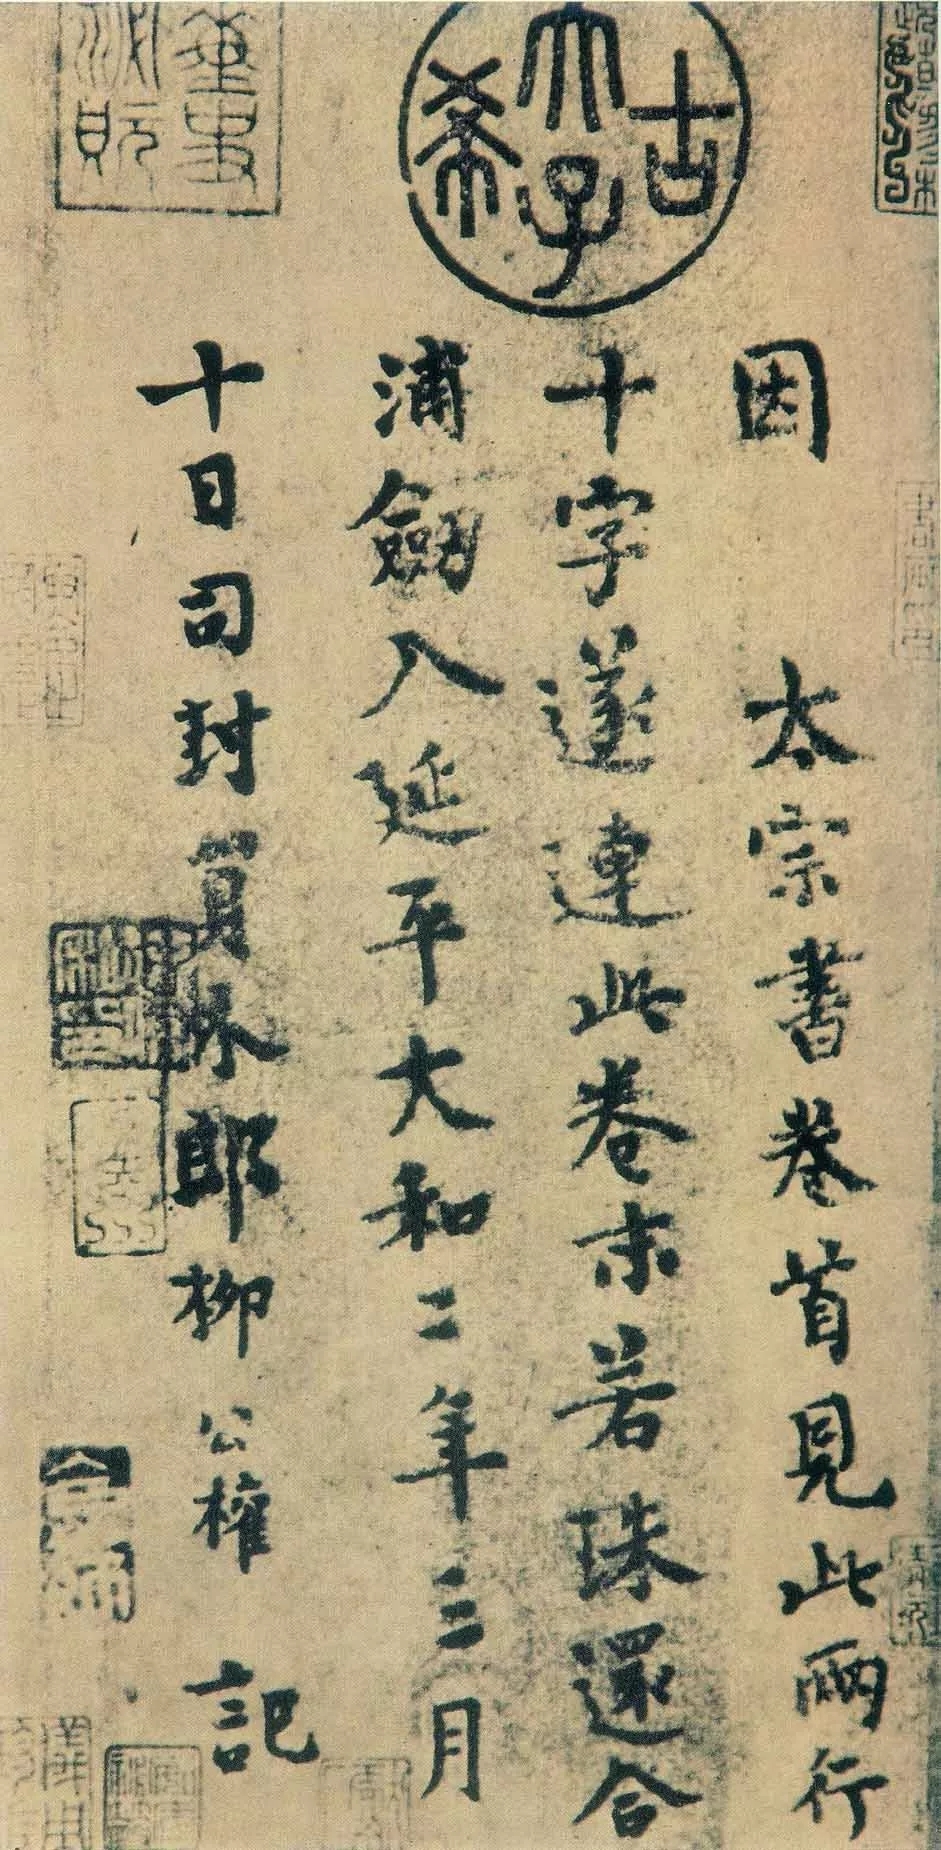 古希天子
因 太宗書卷首見此兩行
十字遂連此卷末若珠還合
浦劔入延平大和二年三月
十日司封員外郎柳公權 記